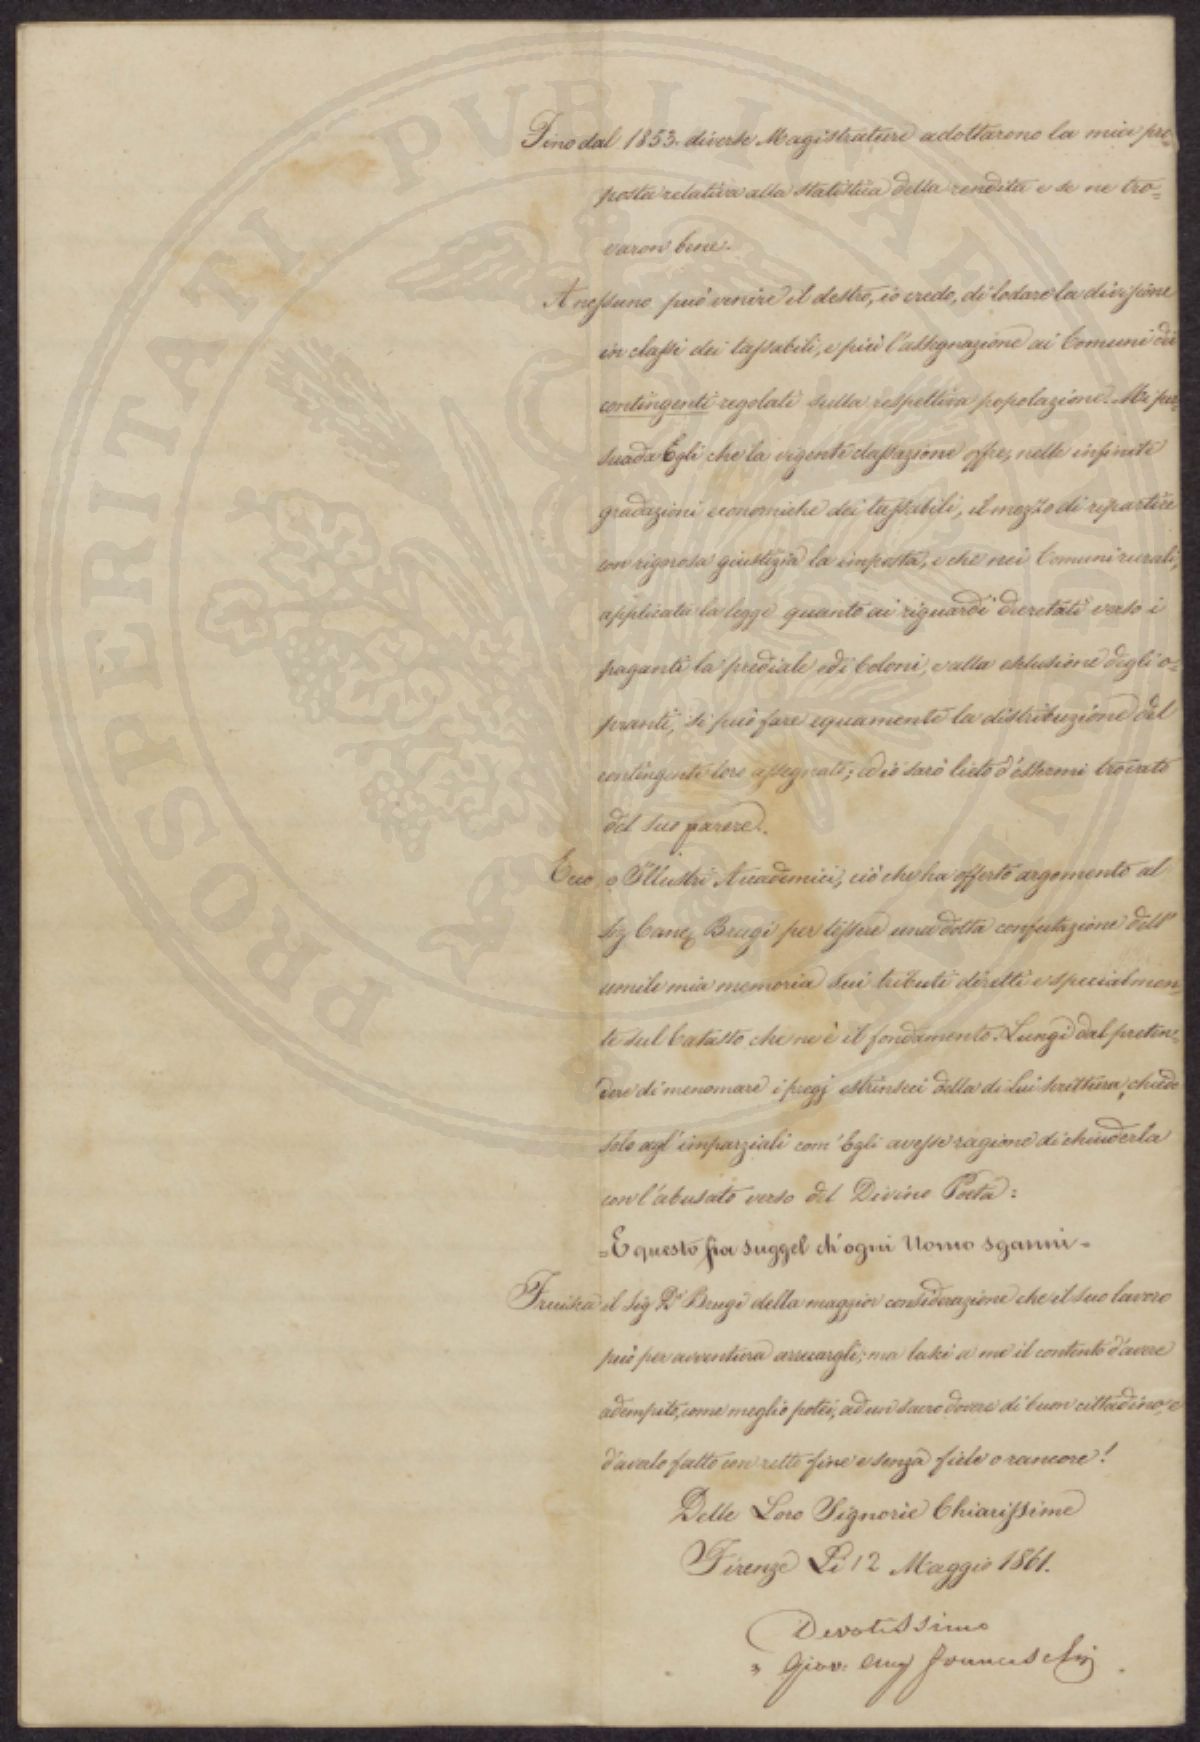 Fino dal 1853. diverse Magistrature adottarono la mia pro=
posta relativa alla statistica della rendita e se ne tro=
varon bene.
A nessuno può venire il destro, io credo, di lodare la divisione
in classi dei tassabili, e più l'assegnazione ai Comuni di
contingenti regolati sulla respettiva popolazione. Mi per=
suada Egli che la vigente classazione offre, nelle infinite
gradazioni economiche dei tassabili, il mezzo di repartire
con rigorosa giustizia la imposta, e che nei Comuni rurali,
applicata la legge quanto ai riguardi decretati verso i
paganti la prediale ed i Coloni, e alla esclusione degli o=
pranti, si può fare equamente la distribuzione del
contingente loro assegnato; ed io sarò lieto d'essermi trovato
del suo parere.
Ecco, o Illustri Accademici, ciò che ha offerto argomento al
Sig Canc Brugi per tessere una dotta confutazione dell'
umile mia memoria sui tributi diretti e specialmen=
te sul Catasto che ne è il fondamento. Lungi dal preten=
dere di menomare i pregj estrinseci della di Lui scrittura, chiedo
solo agl'imparziali com'Egli avesse ragione di chiuderla
con l'abusato verso del Divino Poeta:
=E questo fia suggel ch'ogni Uomo sganni=
Fruisca il Sig Dr Brugi della maggior considerazione che il suo lavoro
può per avventura arrecargli; ma lasci a me il contento d'avere
adempito, come meglio potei, ad un sacro dovere di buon cittadino, e
d'averlo fatto con retto fine e senza fiele o rancore!
Delle Loro Signorie Chiarissime
Firenze Li 12 Maggio 1861.
Devotissimo
Giov. Ang Franceschi
PROSPERITATI PUBLICAE AUGENDAE